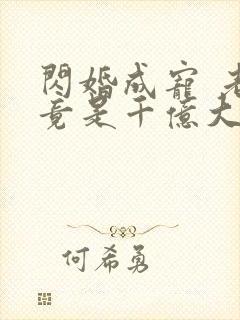 閃婚成寵 老
竟是千億大
何希勇